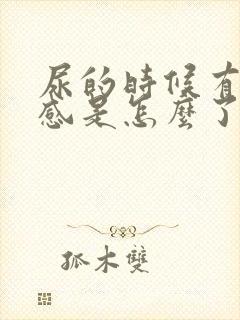 尿的時候有
感是怎麼了
孤木雙